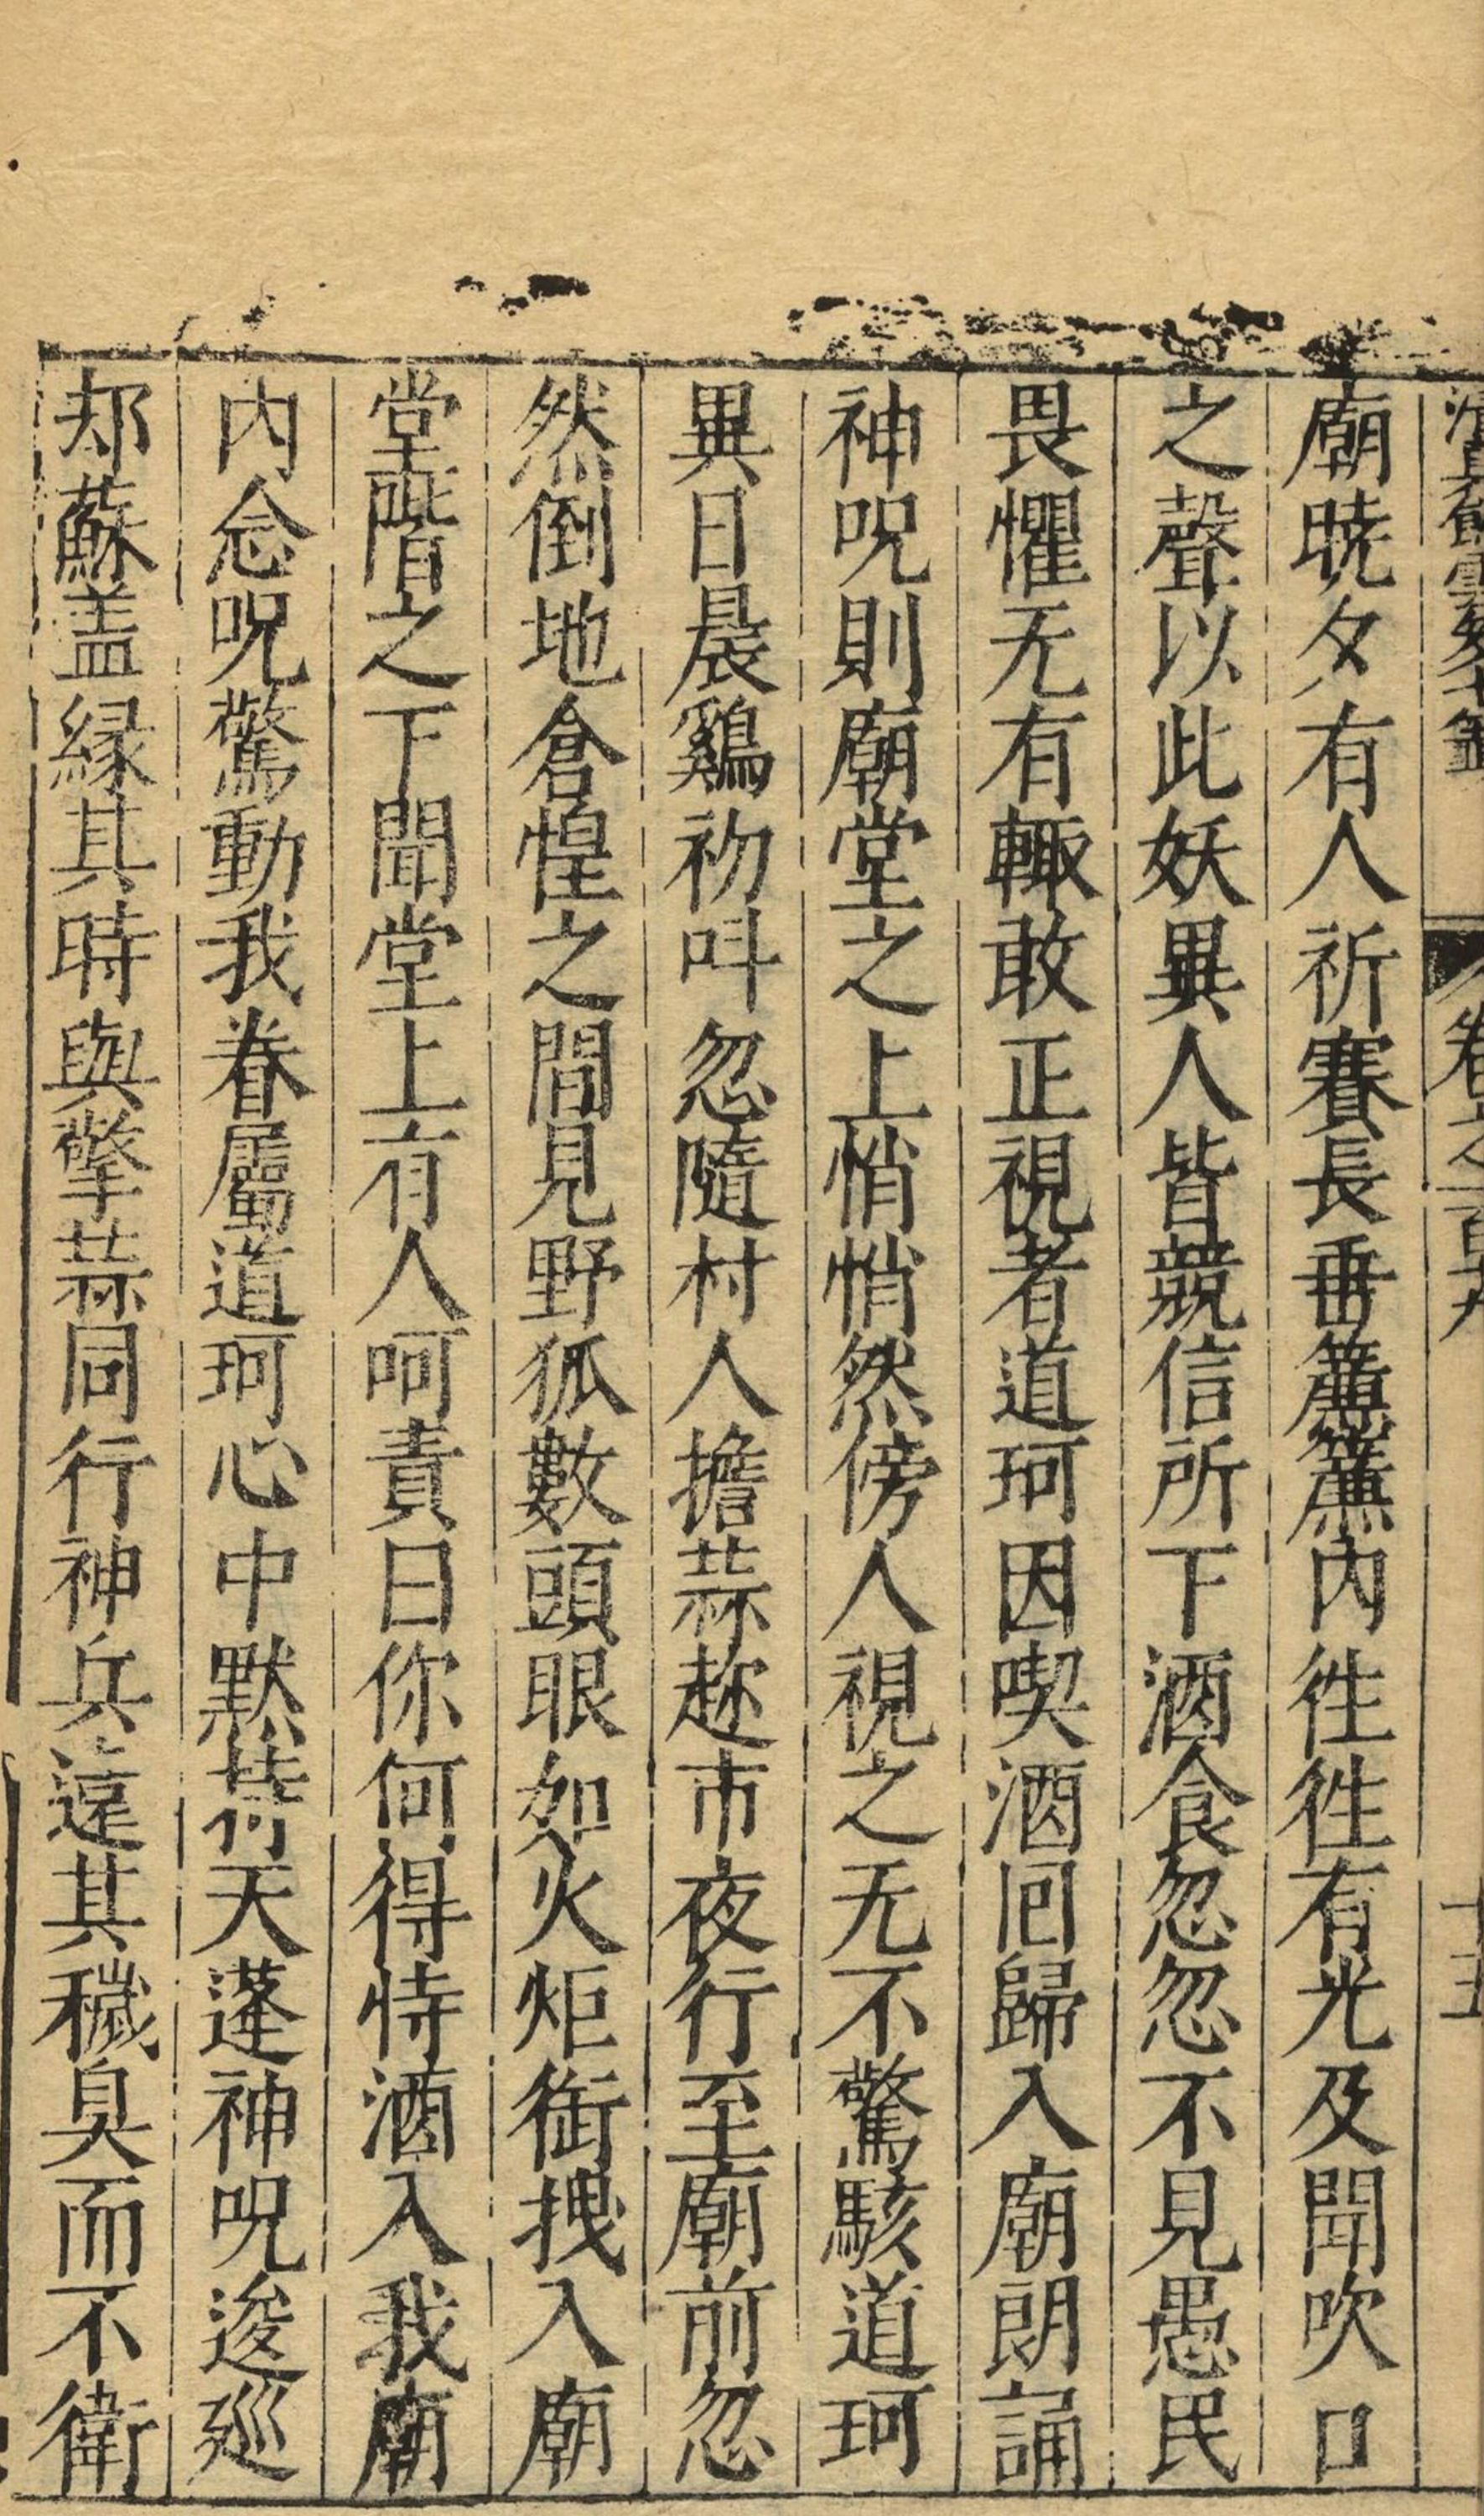 卷之一百十九
十五
廟曉夕有人祈賽長垂簾簾內徃徃有光及聞吹口
之聲以此妖異人皆競信所下酒食忽忽不見愚民
畏懼无有輙敢正視者道珂因喫酒囘歸入廟朗誦
神呪則廟堂之上悄悄然傍人視之无不驚駭道珂
異日晨鷄初呌忽隨村人擔蒜趂市夜行至廟前忽
然倒地倉惶之間見野狐數頭眼如火炬銜拽入廟
堂階之下聞堂上有人呵責曰你何得恃酒入我廟
內念呪驚動我眷屬道珂心中默持天蓬神呪逡廵
却蘇盖縁其時與擎蒜同行神兵遠其穢臭而不衛